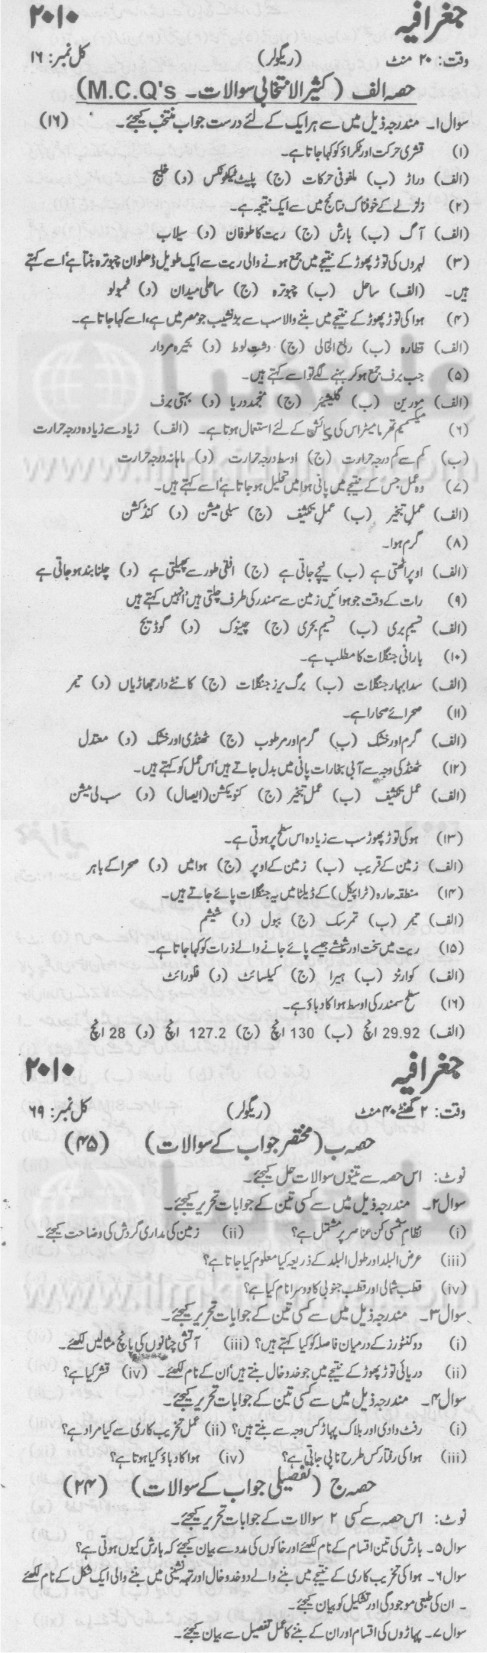 جغرافیہ ۲۰۱۰
وقت: ۲۰ منٹ (ریگولر) کل نمبر: ۱۶
حصہ الف (کثیر الانتخابی سوالات۔ M.C.Q's)
سوال۱۔ مندرجہ ذیل میں سے ہر ایک کے لئے درست جواب منتخب کیجئے۔ (۱۶)
(۱) قشری حرکت اور ٹکراؤ کو کہا جاتا ہے۔
(الف) دراڑ (ب) ملفوفی حرکات (ج) پلیٹ ٹیکٹونکس (د) خلیج
(۲) زلزلے کے خوفناک نتائج میں سے ایک نتیجہ ہے۔
(الف) آگ (ب) بارش (ج) ریت کا طوفان (د) سیلاب
(۳) لہروں کی توڑ پھوڑ کے نتیجے میں جمع ہونے والی ریت سے ایک طویل ڈھلوان چبوترہ بنتا ہے اُسے کہتے
ہیں۔ (الف) ساحل (ب) چبوترہ (ج) ساحلی میدان (د) ٹمبولو
(۴) ہوا کی توڑ پھوڑ کے نتیجے میں بننے والا سب سے بڑا نشیب جو مصر میں ہے، اسے کہا جاتا ہے۔
(الف) قطارہ (ب) ربع الخالی (ج) دشتِ لوط (د) بحیرہ مردار
(۵) جب برف جمع ہو کر بہنے لگے تو اسے کہتے ہیں۔
(الف) مورین (ب) گلیشیئر (ج) منجمد دریا (د) بہتی برف
(۶) میکسیمم تھرمامیٹر اس کی پیمائش کے لئے استعمال ہوتا ہے۔ (الف) زیادہ سے زیادہ درجہ حرارت
(ب) کم سے کم درجہ حرارت (ج) اوسط درجہ حرارت (د) ماہانہ درجہ حرارت
(۷) وہ عمل جس کے نتیجے میں پانی ہوا میں تحلیل ہو جاتا ہے اُسے کہتے ہیں۔
(الف) عمل تبخیر (ب) عمل تکثیف (ج) سبلی میشن (د) کنڈکشن
(۸) گرم ہوا۔
(الف) اوپر اٹھتی ہے (ب) نیچے جاتی ہے (ج) افقی طور سے پھیلتی ہے (د) چلنا بند ہو جاتی ہے
(۹) رات کے وقت جو ہوائیں زمین سے سمندر کی طرف چلتی ہیں اُنہیں کہتے ہیں
(الف) نسیم بری (ب) نسیم بحری (ج) چینوک (د) کوڈیچ
(۱۰) بارانی جنگلات کا مطلب ہے۔
(الف) سدابہار جنگلات (ب) برگ ریز جنگلات (ج) کانٹے دار جھاڑیاں (د) تیمر
(۱۱) صحرائے صحارا ہے۔
(الف) گرم اور خشک (ب) گرم اور مرطوب (ج) ٹھنڈی اور خشک (د) معتدل
(۱۲) ٹھنڈ کی وجہ سے آبی بخارات پانی میں بدل جاتے ہیں اُس عمل کو کہتے ہیں۔
(الف) عمل تکثیف (ب) عمل تبخیر (ج) کنویکشن (ایصال) (د) سب لی میشن
(۱۳) ہو کی توڑ پھوڑ سب سے زیادہ اس سطح پر ہوتی ہے۔
(الف) زمین کے قریب (ب) زمین کے اوپر (ج) ہوا میں (د) صحرا کے باہر
(۱۴) منطقہ حارہ (ٹراپیکل) کے ڈیلٹا میں یہ جنگلات پائے جاتے ہیں۔
(الف) تیمر (ب) تمرسک (ج) ببول (د) شیشم
(۱۵) ریت میں سخت اور شیشے جیسے پائے جانے والے ذرات کو کہا جاتا ہے۔
(الف) کوارٹز (ب) ہیرا (ج) کیلسائٹ (د) فلورائٹ
(۱۶) سطح سمندر کی اوسط ہوا کا دباؤ ہے۔
(الف) 29.92 انچ (ب) 130 انچ (ج) 127.2 انچ (د) 28 انچ
جغرافیہ ۲۰۱۰
وقت: ۲ گھنٹے ۴۰ منٹ (ریگولر) کل نمبر: ۶۹
حصہ ب (مختصر جواب کے سوالات) (۴۵)
نوٹ: اس حصہ سے تینوں سوالات حل کیجئے۔
سوال۲۔ مندرجہ ذیل میں سے کسی تین کے جوابات تحریر کیجئے۔
(i) نظام شمسی کن عناصر پر مشتمل ہے؟ (ii) زمین کی مداری گردش کی وضاحت کیجئے۔
(iii) عرض البلد اور طول البلد کے ذریعہ کیا معلوم کیا جاتا ہے؟
(iv) قطب شمالی اور قطب جنوبی کا دوسرا نام کیا ہے؟
سوال۳۔ مندرجہ ذیل میں سے کسی تین کے جوابات تحریر کیجئے۔
(i) دو کنٹورز کے درمیان فاصلہ کو کیا کہتے ہیں؟ (iii) آتشی چٹانوں کی پانچ مثالیں لکھئے۔
(ii) دریائی توڑ پھوڑ کے نتیجے میں جو خدوخال بنتے ہیں اُن کے نام لکھئے۔ (iv) قشر کیا ہے؟
سوال۴۔ مندرجہ ذیل میں سے کسی تین کے جوابات تحریر کیجئے۔
(i) رفٹ وادی اور بلاک پہاڑ کس وجہ سے بنتے ہیں؟ (ii) عمل تخریب کاری سے کیا مراد ہے؟
(iii) ہوا کی رفتار کس طرح ناپی جاتی ہے؟ (iv) ہوا کا دباؤ کیا ہوتا ہے؟
حصہ ج (تفصیلی جواب کے سوالات) (۲۴)
نوٹ: اس حصہ سے کسی ۲ سوالات کے جوابات تحریر کیجئے۔
سوال۵۔ بارش کی تین اقسام کے نام لکھئے اور خاکوں کی مدد سے بیان کیجئے کہ بارش کیوں ہوتی ہے؟
سوال۶۔ ہوا کی تخریب کاری کے نتیجے میں بننے والے دو خدوخال اور تہہ نشینی میں بننے والی ایک شکل کے نام لکھئے
۔ ان کی طبعی موجودگی اور تشکیل کو بیان کیجئے۔
سوال۷۔ پہاڑوں کی اقسام اور ان کے بننے کا عمل تفصیل سے بیان کیجئے۔